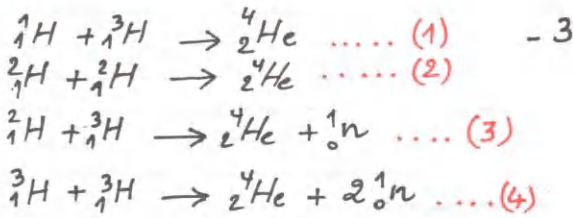 ¹₁H + ³₁H ⟶ ⁴₂He ..... (1) - 3
²₁H + ²₁H ⟶ ⁴₂He ..... (2)
²₁H + ³₁H ⟶ ⁴₂He + ¹₀n .... (3)
³₁H + ³₁H ⟶ ⁴₂He + 2 ¹₀n ....(4)